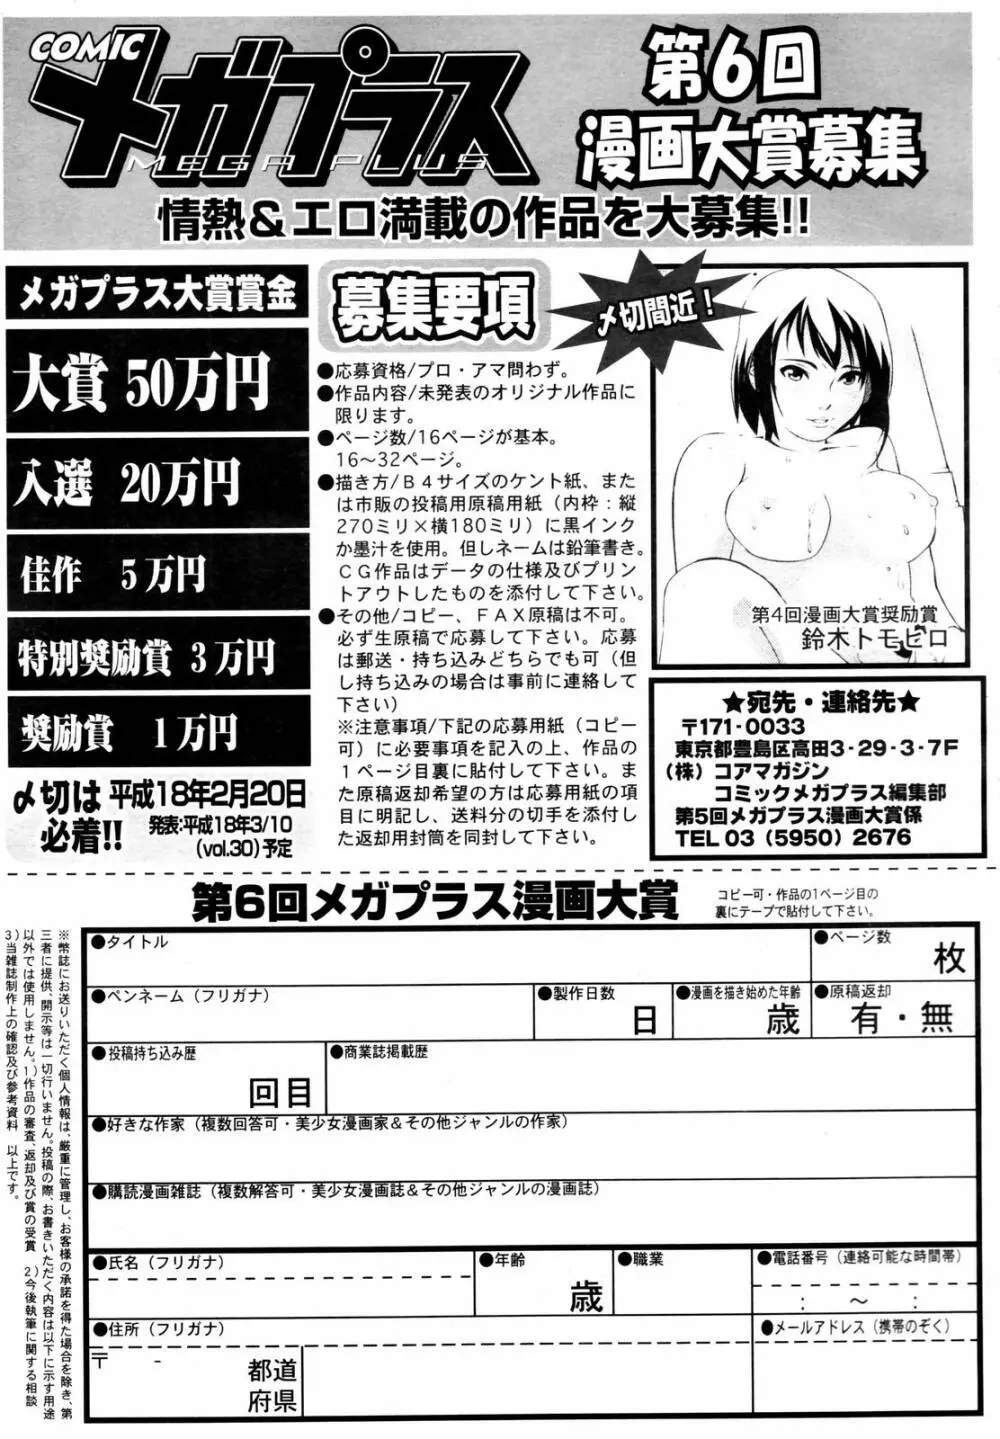 COMIC
メガプラス
MEGA PLUS
第6回
漫画大賞募集
情熱&エロ満載の作品を大募集!!
メガプラス大賞賞金
大賞 50万円
入選 20万円
佳作 5万円
特別奨励賞 3万円
奨励賞 1万円
〆切は
必着!!
平成18年2月20日
発表:平成18年3/10
(vol.30)予定
募集要項
●応募資格/プロ・アマ問わず。
●作品内容/未発表のオリジナル作品に
限ります。
●ページ数/16ページが基本。
16〜32ページ。
●描き方/B4サイズのケント紙、また
は市販の投稿用原稿用紙(内枠:縦
270ミリ×横180ミリ)に黒インク
か墨汁を使用。但しネームは鉛筆書き。
CG作品はデータの仕様及びプリン
トアウトしたものを添付して下さい。
●その他/コピー、FAX原稿は不可。
必ず生原稿で応募して下さい。応募
は郵送・持ち込みどちらでも可(但
し持ち込みの場合は事前に連絡して
下さい)
※注意事項/下記の応募用紙(コピー
可)に必要事項を記入の上、作品の
1ページ目裏に貼付して下さい。また
原稿返却希望の方は応募用紙の項
目に明記し、送料分の切手を添付し
た返却用封筒を同封して下さい。
〆切間近!
第4回漫画大賞奨励賞
鈴木トモヒロ
★宛先・連絡先★
〒171-0033
東京都豊島区高田3-29-3-7F
(株) コアマガジン
コミックメガプラス編集部
第5回メガプラス漫画大賞係
TEL 03 (5950) 2676
第6回メガプラス漫画大賞
コピー可・作品の1ページ目の
裏にテープで貼付して下さい。
●タイトル
●ページ数
枚
●ペンネーム(フリガナ)
●製作日数
日
●漫画を描き始めた年齢
歳
●原稿返却
有・無
●投稿持ち込み歴
回目
●商業誌掲載歴
●好きな作家(複数回答可・美少女漫画家&その他ジャンルの作家)
●購読漫画雑誌(複数解答可・美少女漫画誌&その他ジャンルの漫画誌)
●氏名(フリガナ)
●年齢
歳
●職業
●電話番号(連絡可能な時間帯)
: 〜 :
●住所(フリガナ)
〒 -
都道
府県
●メールアドレス(携帯のぞく)
※幣誌にお送りいただく個人情報は、厳重に管理し、お客様の承諾を得た場合を除き、第
三者に提供、開示等は一切行いません。投稿の際、お書きいただく内容は以下に示す用途
以外では使用しません。1)作品の審査、返却及び賞の受賞 2)今後執筆に関する相談
3)当雑誌制作上の確認及び参考資料 以上です。